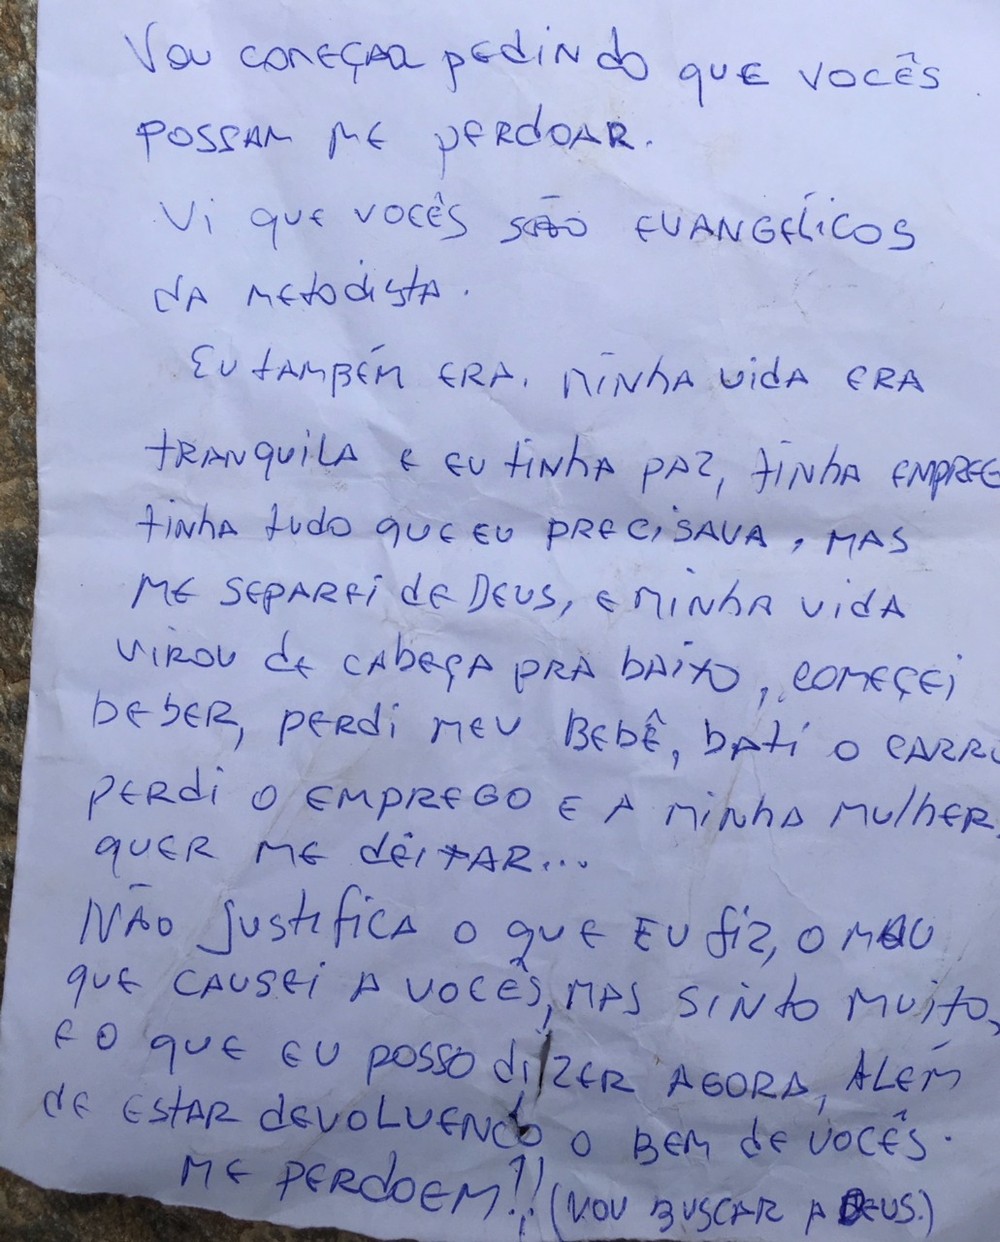 Vou COMEÇAR pedindo que vocês
POSSAM ME perdoar.
Vi que vocês são EVANGÉLICOS
da metodista.
Eu também era. Minha vida era
tranquila e eu tinha paz, tinha empreg
tinha tudo que eu precisava, mas
me separei de Deus, e minha vida
virou de cabeça pra baixo, começei
beber, perdi meu bebê, bati o carro
perdi o emprego e a minha mulher
quer me deitar...
Não justifica o que eu fiz, o mau
que causei a vocês, mas sinto muito,
e o que eu posso dizer agora, além
de estar devolvendo o bem de vocês.
Me perdoem!! (vou buscar a Deus.)